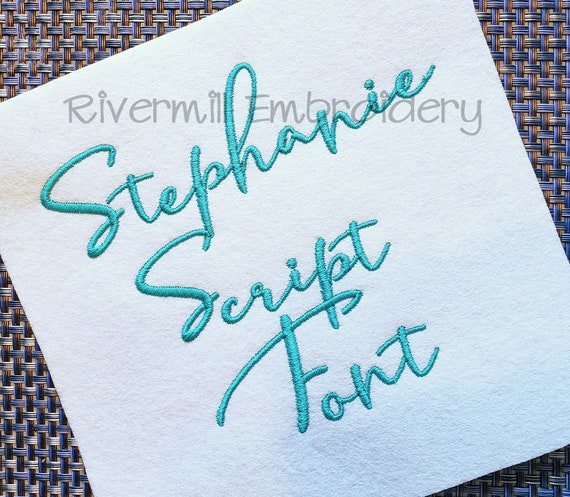 Rivermill Embroidery
Stephanie
Script
Font